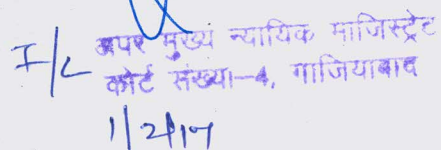 I/C अपर मुख्य न्यायिक माजिस्ट्रेट
कोर्ट संख्या-4, गाजियाबाद
1/2/17